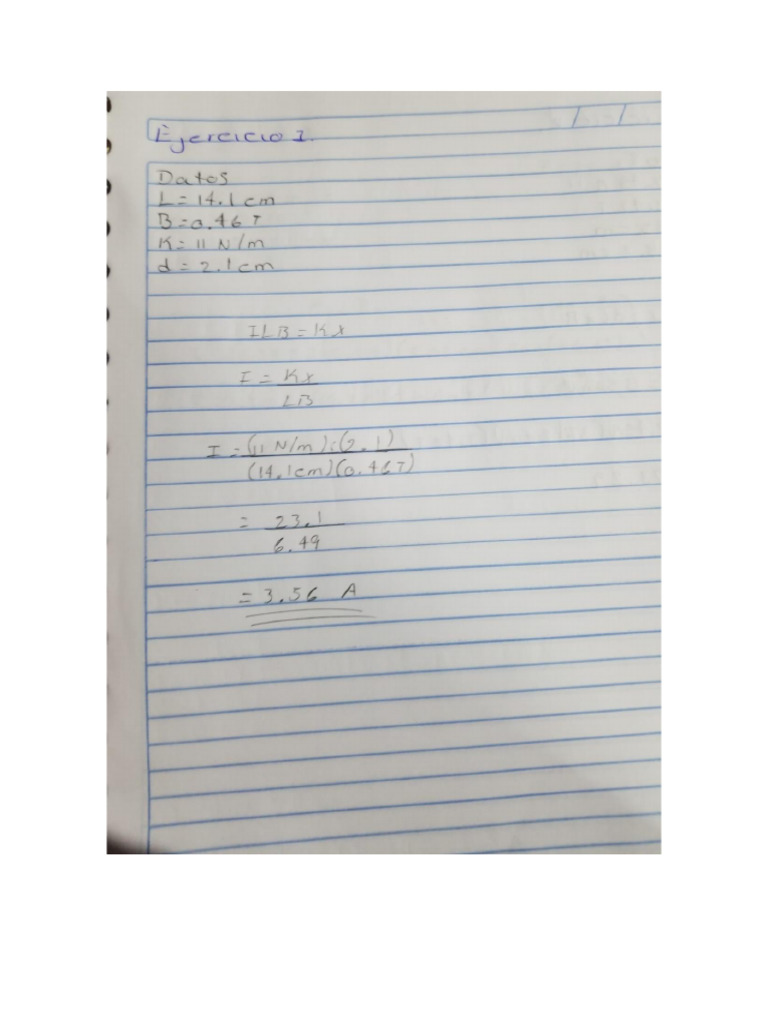 Ejercicio 1.
Datos
L = 14.1 cm
B = 0.46 T
K = 11 N/m
d = 2.1 cm
ILB = Kx
I = Kx
LB
I = (11 N/m) (2.1)
(14.1cm)(0.46T)
= 23.1
6.49
= 3.56 A